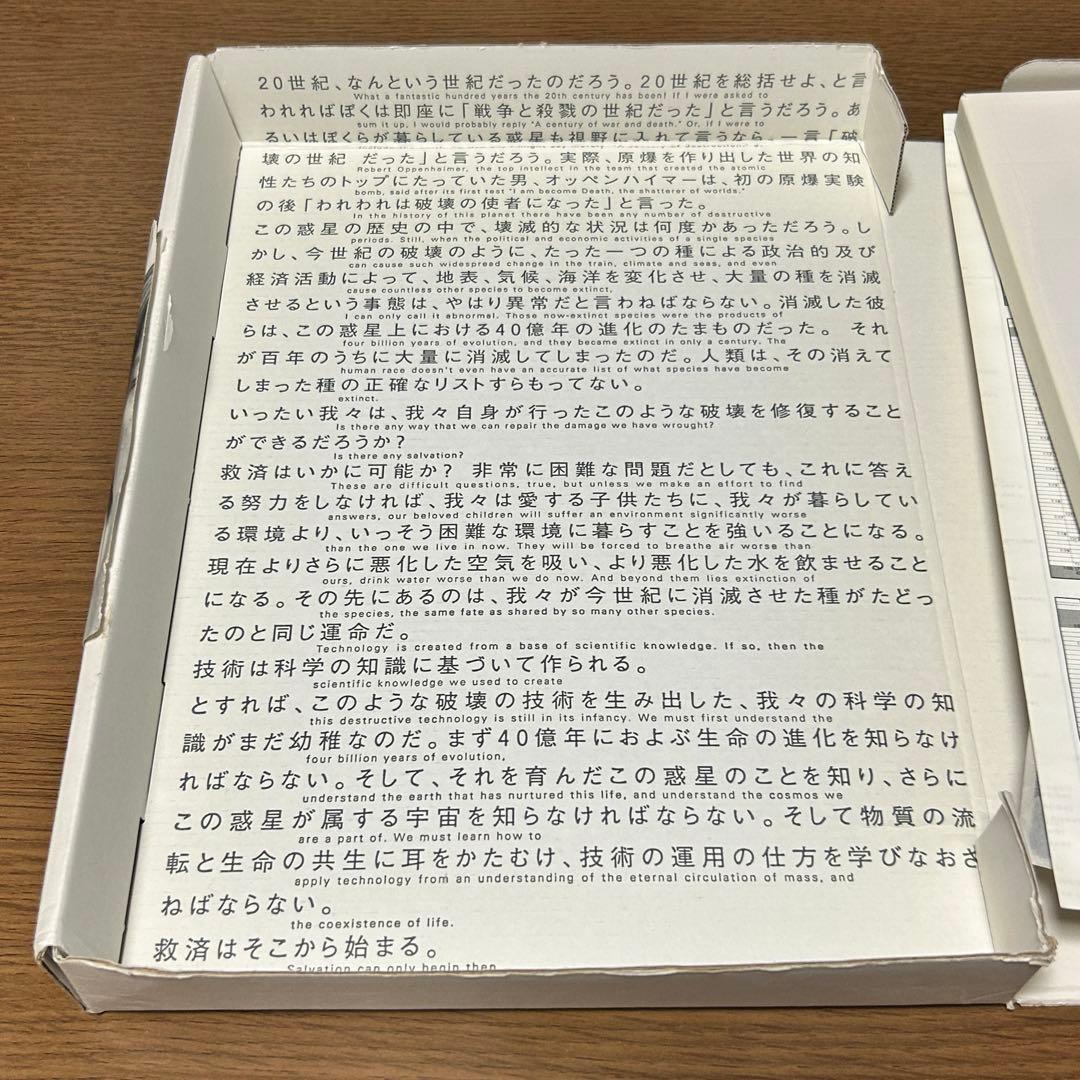 20世紀、なんという世紀だったのだろう。20世紀を総括せよ、と言
What a fantastic hundred years the 20th century has been! If I were asked to
われればぼくは即座に「戦争と殺戮の世紀だった」と言うだろう。あ
sum it up, I would probably reply "A century of war and death." Or, if I were to
るいはぼくらが暮らしている惑星も視野に入れて言うなら、一言「破
壊の世紀 だった」と言うだろう。実際、原爆を作り出した世界の知
Robert Oppenheimer, the top intellect in the team that created the atomic
性たちのトップにたっていた男、オッペンハイマーは、初の原爆実験
bomb, said after its first test "I am become Death, the shatterer of worlds."
の後「われわれは破壊の使者になった」と言った。
In the history of this planet there have been any number of destructive
この惑星の歴史の中で、壊滅的な状況は何度かあっただろう。し
periods. Still, when the political and economic activities of a single species
かし、今世紀の破壊のように、たった一つの種による政治的及び
can cause such widespread change in the train, climate ad seas, and even
経済活動によって、地表、気候、海洋を変化させ、大量の種を消滅
cause countless other species to become extinct,
させるという事態は、やはり異常だと言わねばならない。消滅した彼
I can only call it abnormal. Those now-extinct species were the products of
らは、この惑星上における40億年の進化のたまものだった。 それ
four billion years of evolution, and they became extinct in only a century. The
が百年のうちに大量に消滅してしまったのだ。人類は、その消えて
human race doesn't even have an accurate list of what species have become
しまった種の正確なリストすらもってない。
extinct.
いったい我々は、我々自身が行ったこのような破壊を修復すること
Is there any way that we can repair the damage we have wrought?
ができるだろうか?
Is there any salvation?
救済はいかに可能か? 非常に困難な問題だとしても、これに答え
These are difficult questions, true, but unless we make an effort to find
る努力をしなければ、我々は愛する子供たちに、我々が暮らしてい
answers, our beloved children will suffer an environment significantly worse
る環境より、いっそう困難な環境に暮らすことを強いることになる。
than the one we live in now. They will be forced to breathe air worse than
現在よりさらに悪化した空気を吸い、より悪化した水を飲ませること
ours, drink water worse than we do now. And beyond them lies extinction of
になる。その先にあるのは、我々が今世紀に消滅させた種がたどっ
the species, the same fate as shared by so many other species.
たのと同じ運命だ。
Technology is created from a base of scientific knowledge. If so, then the
技術は科学の知識に基づいて作られる。
scientific knowledge we used to create
とすれば、このような破壊の技術を生み出した、我々の科学の知
this destructive technology is still in its infancy. We must first understand the
識がまだ幼稚なのだ。まず40億年におよぶ生命の進化を知らなけ
four billion years of evolution,
ればならない。そして、それを育んだこの惑星のことを知り、さらに
understand the earth that has nurtured this life, and understand the cosmos we
この惑星が属する宇宙を知らなければならない。そして物質の流
are a part of. We must learn how to
転と生命の共生に耳をかたむけ、技術の運用の仕方を学びなおさ
apply technology from an understanding of the eternal circulation of mass, and
ねばならない。
the coexistence of life.
救済はそこから始まる。
Salvation can only begin then